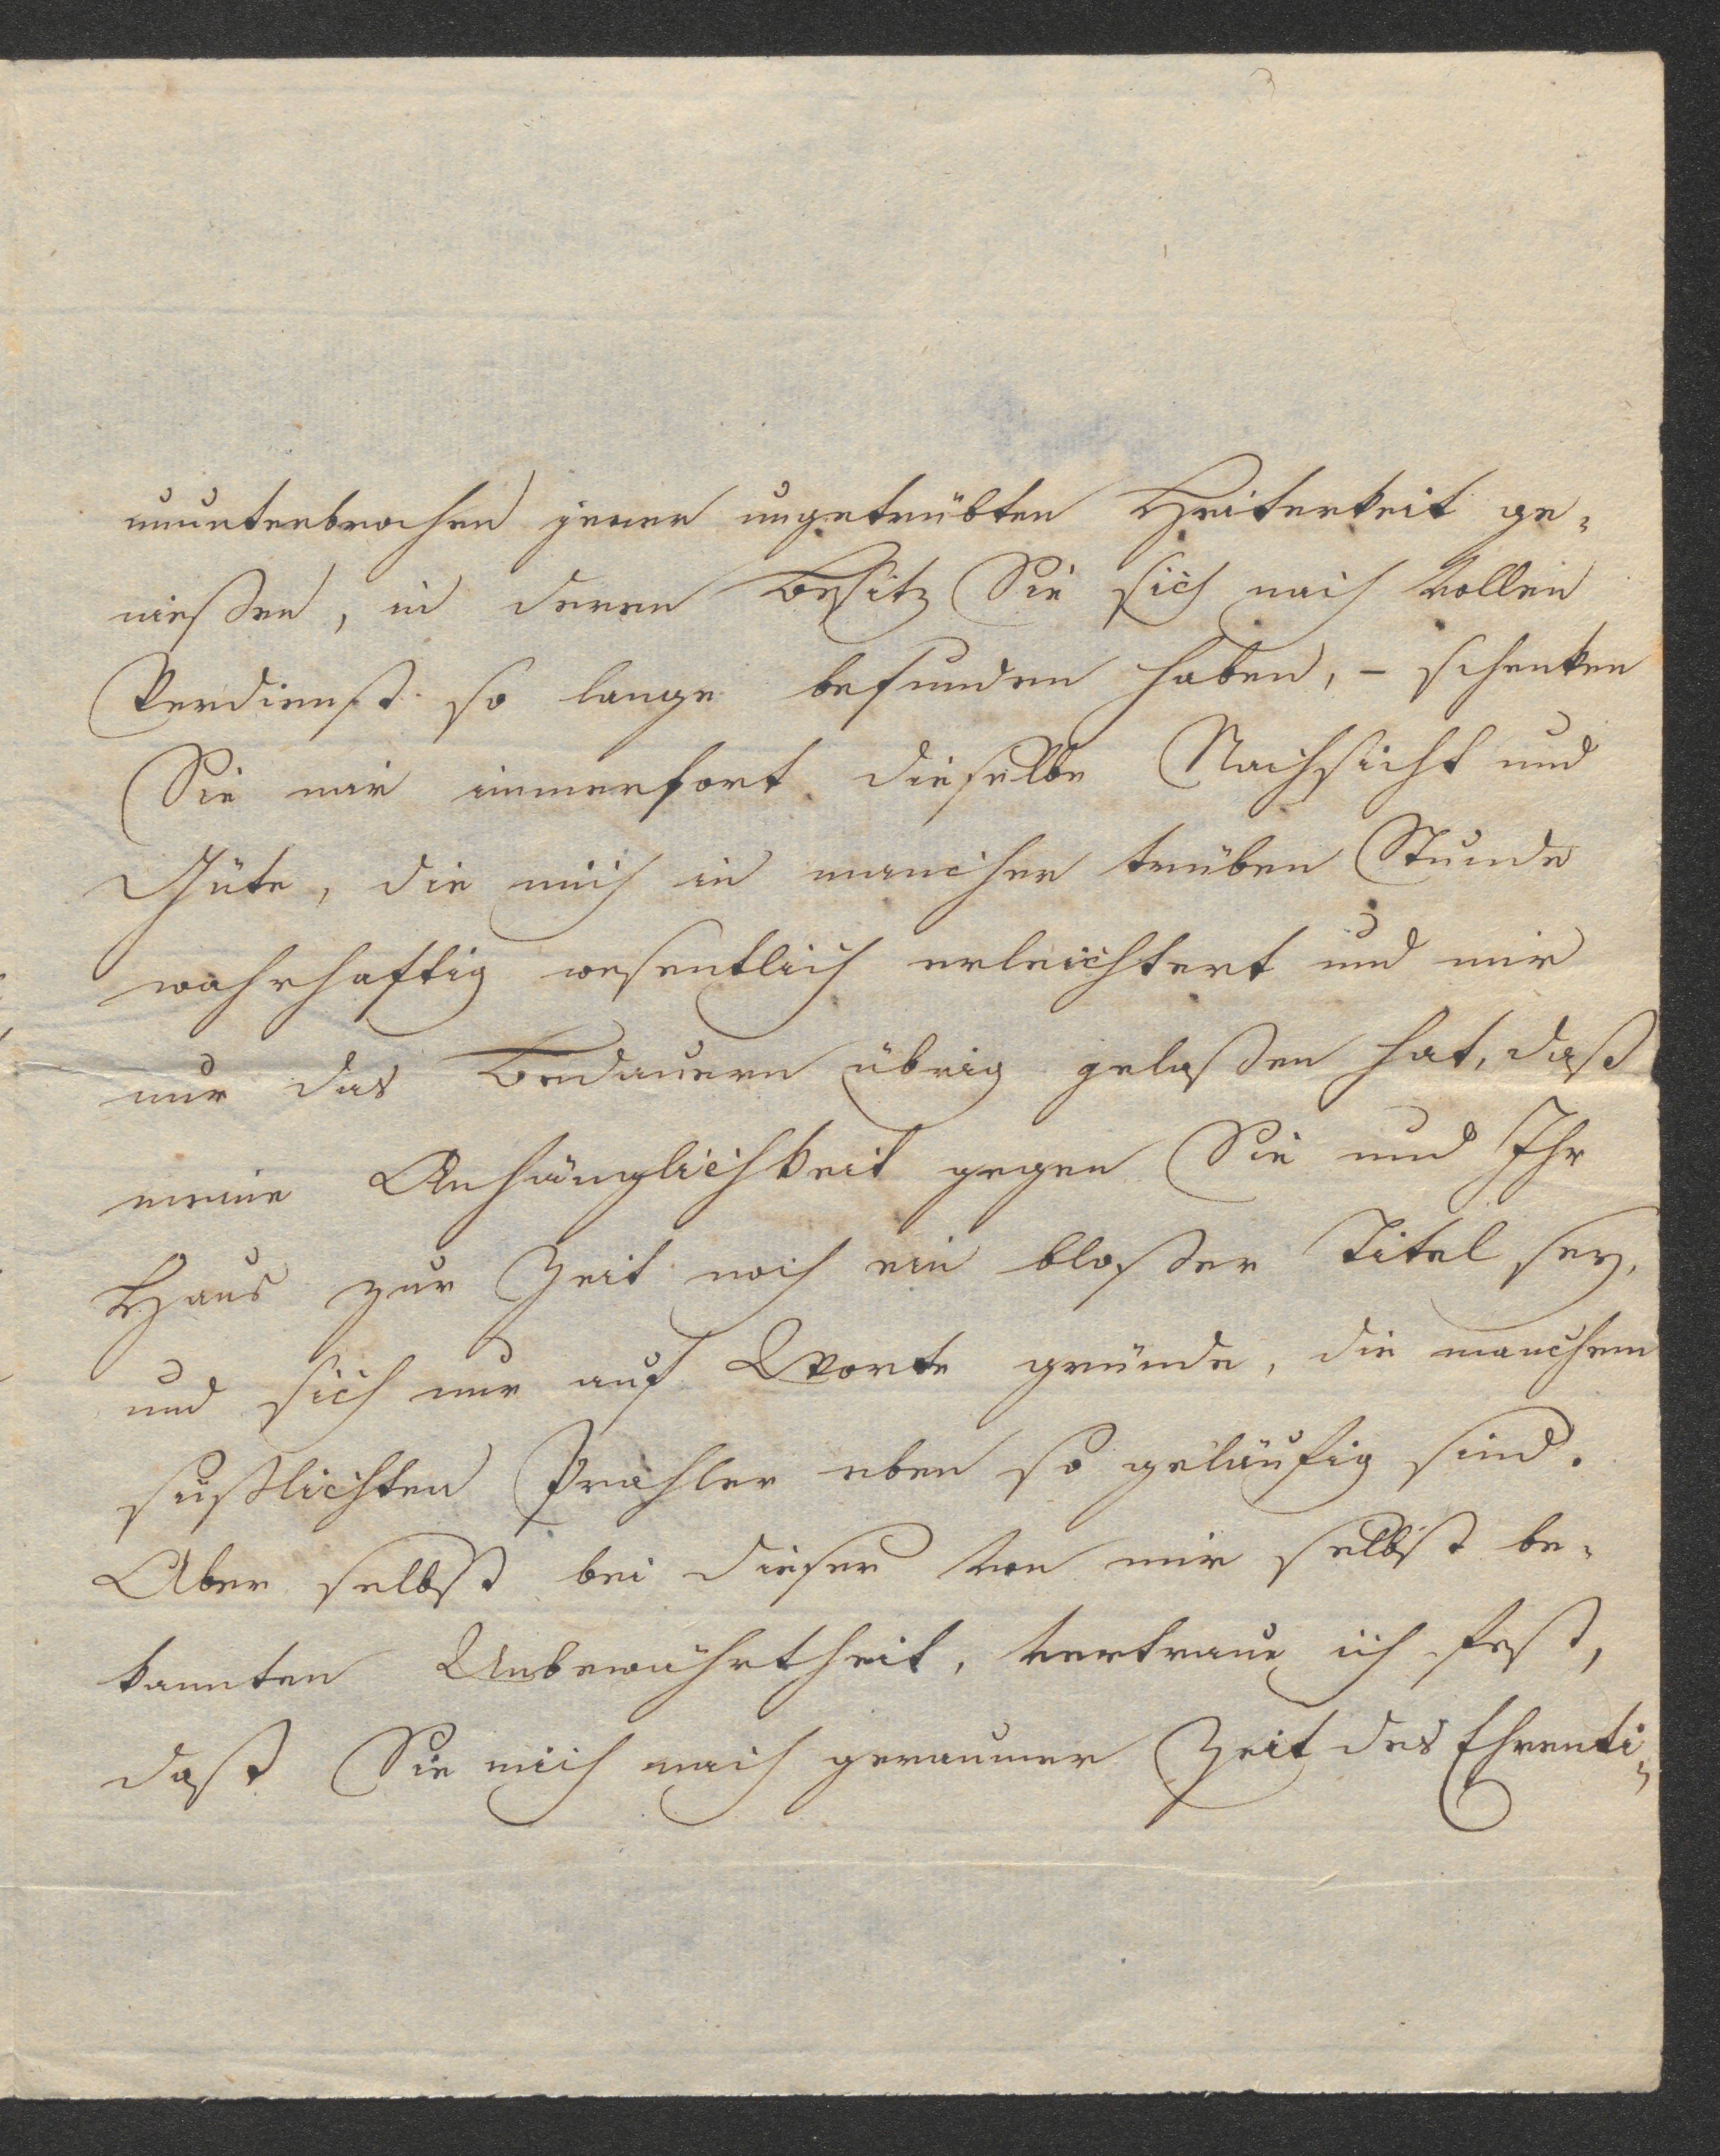 ununterbrochen jener ungetrübten Heiterkeit ge-
nießen, in deren Besitz Sie sich nach vollem
Verdienst so lange befunden haben, – schenken
Sie mir immerfort dieselbe Nachsicht und
Güte, die mich in mancher trüben Stunde
wahrhaftig wesentlich erleichtert und mir
nur das Bedauern übrig gelaßen hat, daß
meine Anhänglichkeit gegen Sie und Ihr
Haus zur Zeit noch ein bloßer Titel sey,
und sich nur auf Worte gründe, die manchem
süßlichten Prahler eben so geläufig sind.
Aber selbst bei dieser von mir selbst be-
kannten Unbewährtheit, vertraue ich fest,
daß Sie mich nach geraumer Zeit des Ehrenti-